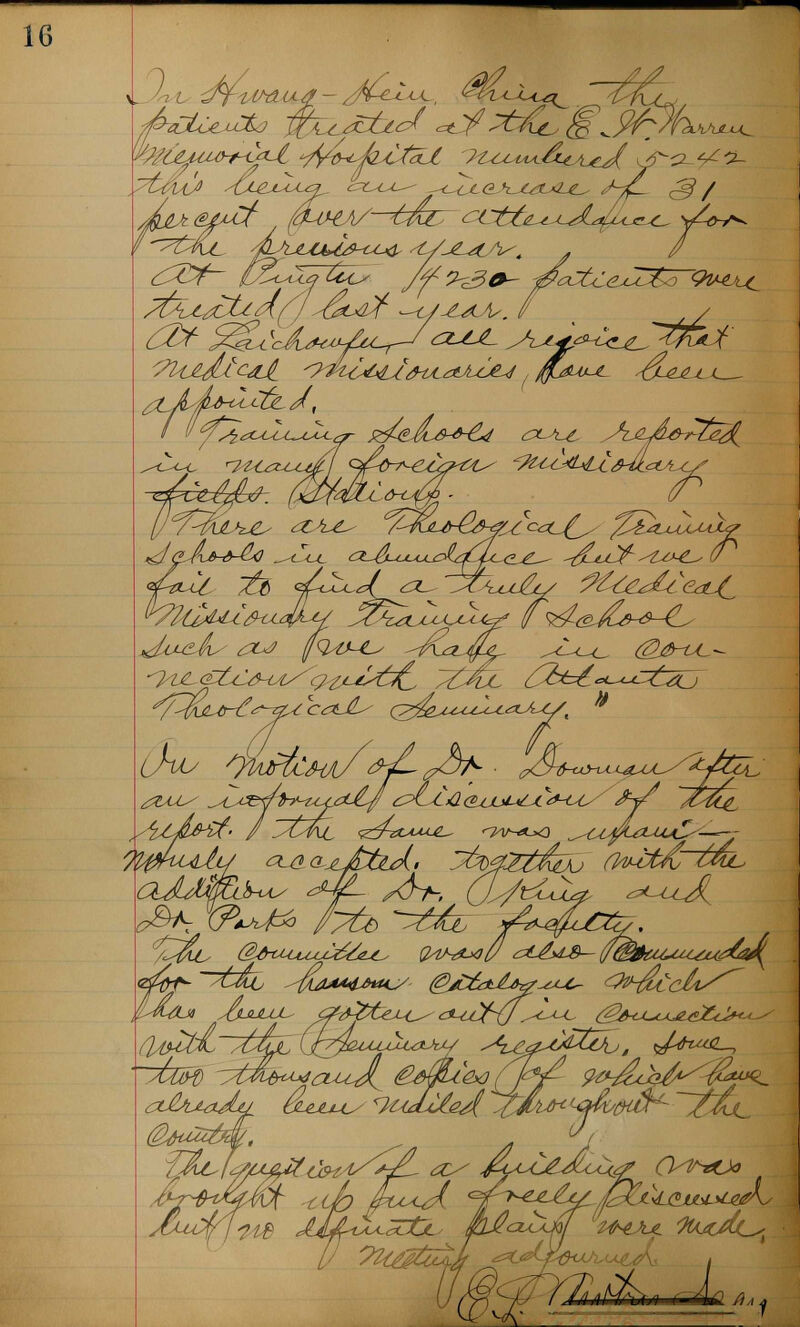 16
In Hwang-Hein, China the
patients treated at the E. W. Warren
Memorial Hospital numbered 5242
this being an increase of 31
percent over the attendance for
the previous year.
At Pingtu 14230 patients were
treated last year.
At Laichowfu all rejoice that
medical missionaries, have been
appointed,
Training schools are reported
in many foreign missionary
fields. Stations.
There are Theological Training
Schools in abundance but we
fail to find a truly Medical
Missionary Training School
such as we have in con-
nection with the Atlanta
Theological Seminary."
On motion of Dr. Dowman after
an informal discussion of the
report. the same was unani-
mously accepted. together with the
addition of Dr. King and
Dr. Parks to the faculty.
The Committee was also Commended
for the hansom Catalogue which
has been gotten out in connection
with the Seminary register, some
two thousand copies of which have
already been mailed throughout the
Country.
The question of a building was
brought up and freely discussed
but no definate plans were made,
Meeting adjourned.
E. L.